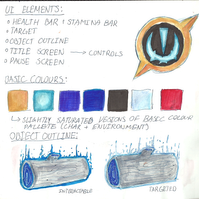 UI ELEMENTS:
HEALTH BAR + STAMINA BAR
TARGET
OBJECT OUTLINE
TITLE SCREEN → CONTROLS
PAUSE SCREEN
BASIC COLOURS:
↳ SLIGHTLY SATURATED VERSIONS OF BASIC COLOUR
PALLETE (CHAR + ENVIRONMENT)
OBJECT OUTLINE:
INTERACTABLE
TARGETED